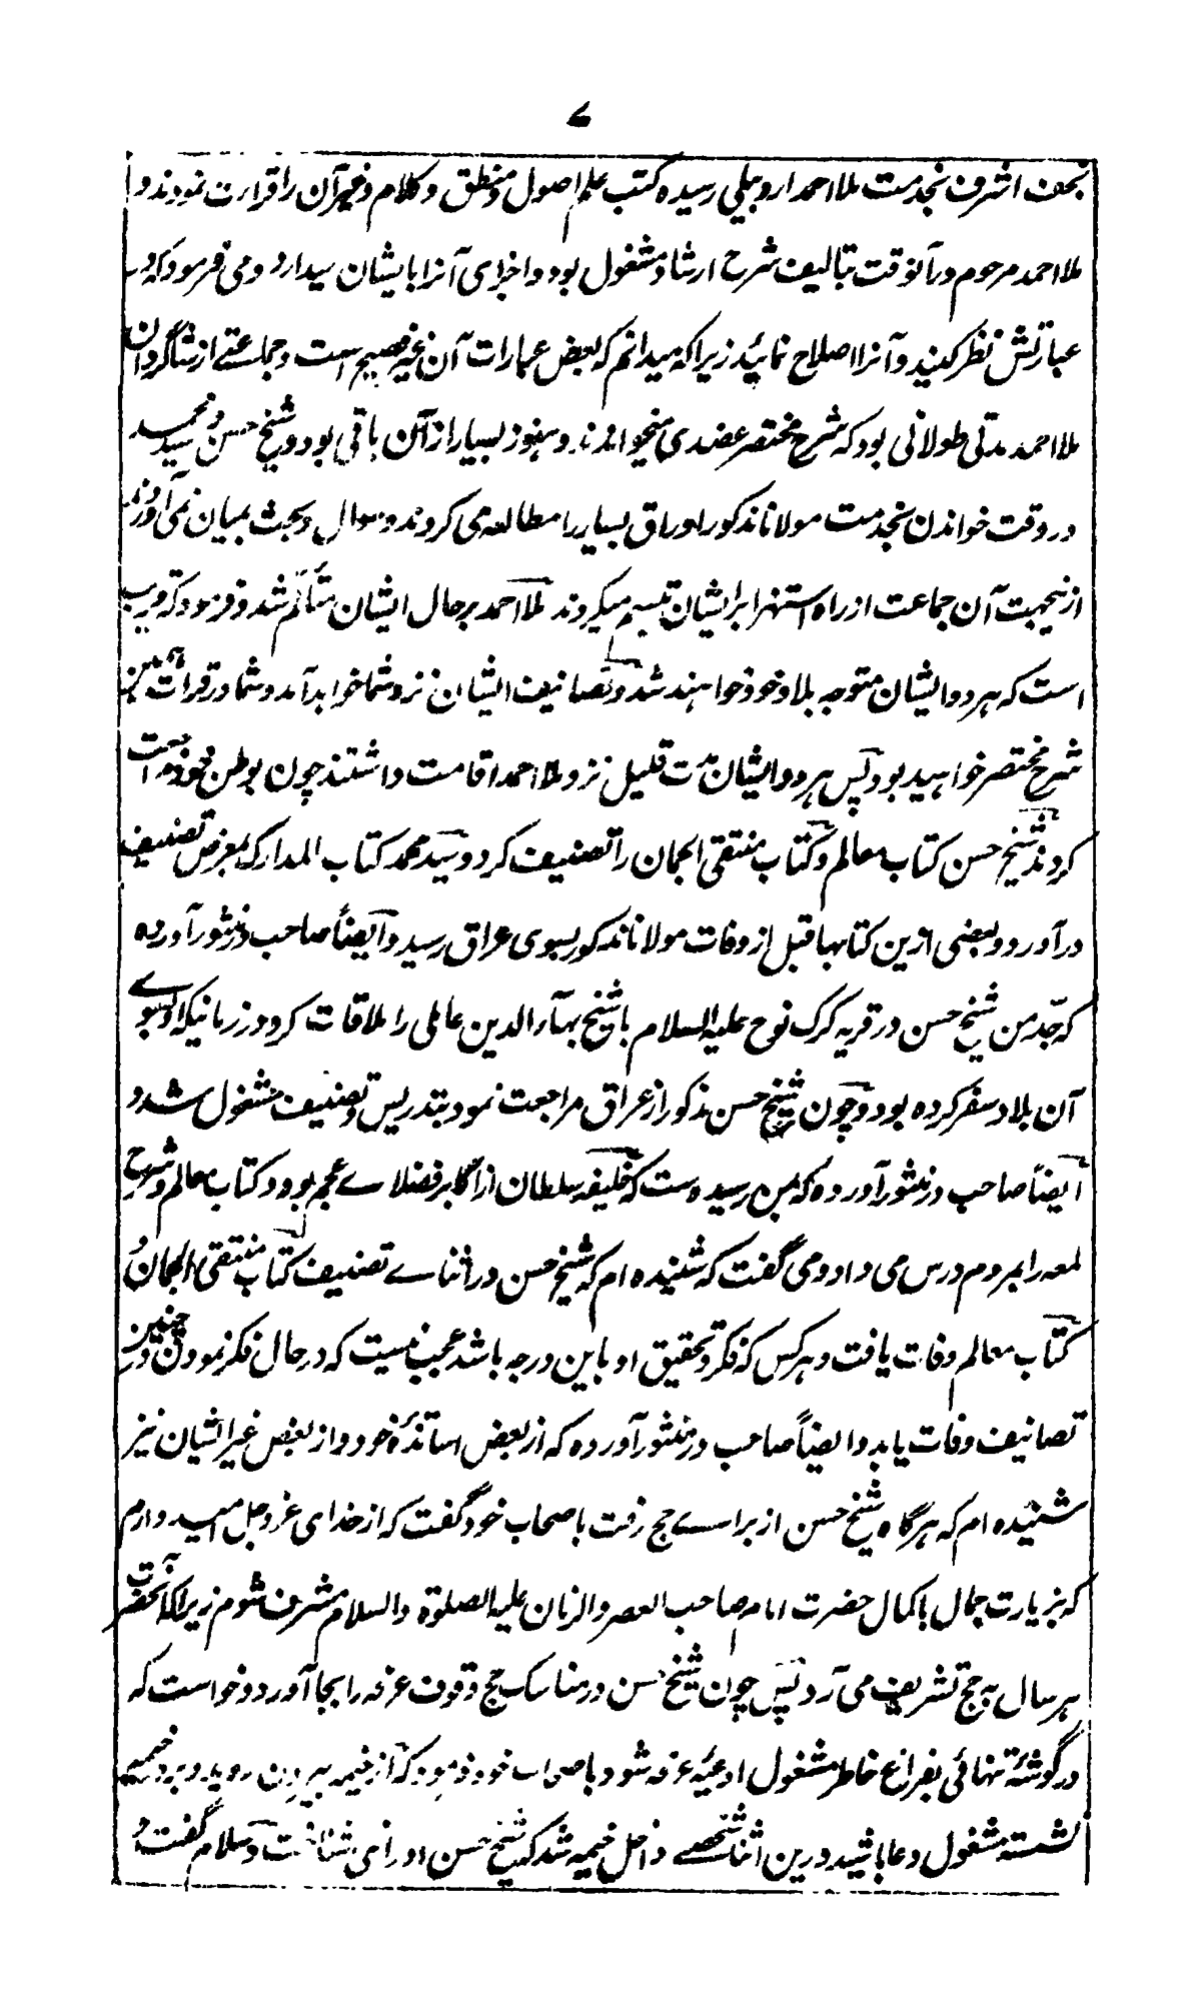 ۷
نجف اشرف بخدمت ملا احمد اردبیلی رسیده کتب علم اصول و منطق و کلام و غیر آن را قرارت نمودند و
ملا احمد مرحوم درآنوقت بتالیف شرح ارشاد مشغول بود و اجزای آنرا بایشان میداد و می فرمود که در
عبارتش نظر کنید و آنرا اصلاح نمائید زیرا که میدانم که بعض عبارات آن غیر فصیح است و جماعتے از شاگردان
ملا احمد مدتی طولانی بود که شرح مختصر عضدی میخواندند و هنوز بسیار از آن باقی بود و شیخ حسن و سید محمد
در وقت خواندن بخدمت مولانا مذکور اوراق بسیار را مطالعه می کردند و سوال و بحث بمیان نمی آوردند
ازینجهت آن جماعت از راه استهزا بر ایشان تبسم میکردند ملا احمد بر حال ایشان متألم شد و فرمود که قریب
است که هر دو ایشان متوجه بلاد خود خواهند شد و تصانیف ایشان نزد شما خواهد آمد و شما در قرات همین
شرح مختصر خواهید بود پس هر دو ایشان مدت قلیل نزد ملا احمد اقامت داشتند چون بوطن خود مراجعت
کردند شیخ حسن کتاب معالم و کتاب منتقی الجمان را تصنیف کرد و سید محمد کتاب المدارک بمعرض تصنیف
درآورد و بعضی ازین کتابها قبل از وفات مولانا مذکور بسوی عراق رسید و ایضاً صاحب در منثور آورده
که جد من شیخ حسن در قریه کرک نوح علیه السلام با شیخ بهآء الدین عاملی را ملاقات کرد در زمانیکه او بسوے
آن بلاد سفر کرده بود و چون شیخ حسن مذکور از عراق مراجعت نمود بتدریس و تصنیف مشغول شد و
ایضاً صاحب در منثور آورده که بمن رسیده ست که خلیفه سلطان از اکابر فضلاے عجم بود و کتاب معالم و شرح
لمعه را بمردم درس می داد و می گفت که شنیده ام که شیخ حسن در اثناے تصنیف کتاب منتقی الجمان و
کتاب معالم وفات یافت و هر کس که فکر و تحقیق او باین درجه باشد عجب نیست که در حال فکر نمودن در چنین
تصانیف وفات یابد و ایضاً صاحب در منثور آورده که از بعض اساتذهٔ خود و از بعض غیر ایشان نیز
شنیده ام که هرگاه شیخ حسن از براے حج رفت باصحاب خود گفت که از خدای عز و جل امید دارم
که بزیارت جمال باکمال حضرت امام صاحب العصر والزمان علیه الصلوة والسلام مشرف شوم زیرا که آنحضرت
هر سال به حج تشریف می آرد پس چون شیخ حسن در مناسک حج وقوف عرفه را بجا آورد و خواست که
در گوشهٔ تنهائی بفراغ خاطر مشغول ادعیهٔ عرفه شود باصحاب خود فرمود که از خیمه بیرون روید و بر در خیمه
نشسته مشغول دعا باشید درین اثنا شخصے داخل خیمه شد که شیخ حسن او را نمی شناخت و سلام گفت و